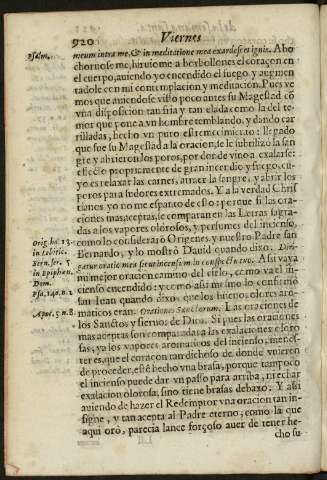 920 Viernes
Psalm. meum intra me, & in meditatione mea exardescet ignis. Aho
chornose me, hiruióme a herbollones el coraçon en
el cuerpo, auiendo yo encendido el fuego y augmen
tadole con mi contemplacion y meditacion. Pues ve
mos que auiendose visto poco antes su Magestad cõ
vna disposicion tan fria y tan elada como la del te-
mor que pone a vn hombre temblando, y dando car
rilladas, hecho vn puro estremecimiento: llegado
que fue su Magestad a la oracion, se le subtilizó la san
gre y abrieron los poros, por donde vino a exalarse:
efecto propriamente de gran incendio y fuego, cu-
yo es relaxar las carnes, atraer la sangre, y abrir los
poros para sudores extremados. Y a la verdad Chris
tianos yo no me espanto de esto: porque si las ora-
ciones mas aceptas, se comparan en las Letras sagra-
Orig. ho. 13. das a los vapores olorosos, y perfumes del incienso,
in Leuitic. como lo consideraró Origenes, y nuestro Padre san
Ber. ser. 3 Bernardo, y lo mostró Dauid quando dixo: Diri-
in Epiphan. gatur oratio mea sicut incensum in conspectu tuo. Assi vaya
Dom. mi mejor oracion camino del cielo, como va el in-
Psa. 140. n. 2 cienso encendido: y como assi mesmo lo confirmó
san Iuan quando dixo, que los buenos olores aro-
Apoc. 5 n. 8. maticos eran: Orationes Sanctorum. Las oraciones de
los Sanctos y siervos de Dios. Si pues las oraciones
mas aceptas son comparadas a las exalaciones oloro
sas, ya los vapores aromaticos del incienso, menes-
ter es, que el coraçon tan dichoso de donde vuieren
de proceder, esté hecho vna brasa, porque tampoco
el incienso puede dar vn passo para arriba, ni echar
exalacion olorosa, sino tiene brasas debaxo. Y assi
auiendo de hazer el Redemptor vna oracion tan in-
signe, y tan acepta al Padre eterno, como la que
aqui oró, parecia lance forçoso auer de tener he-
cho su